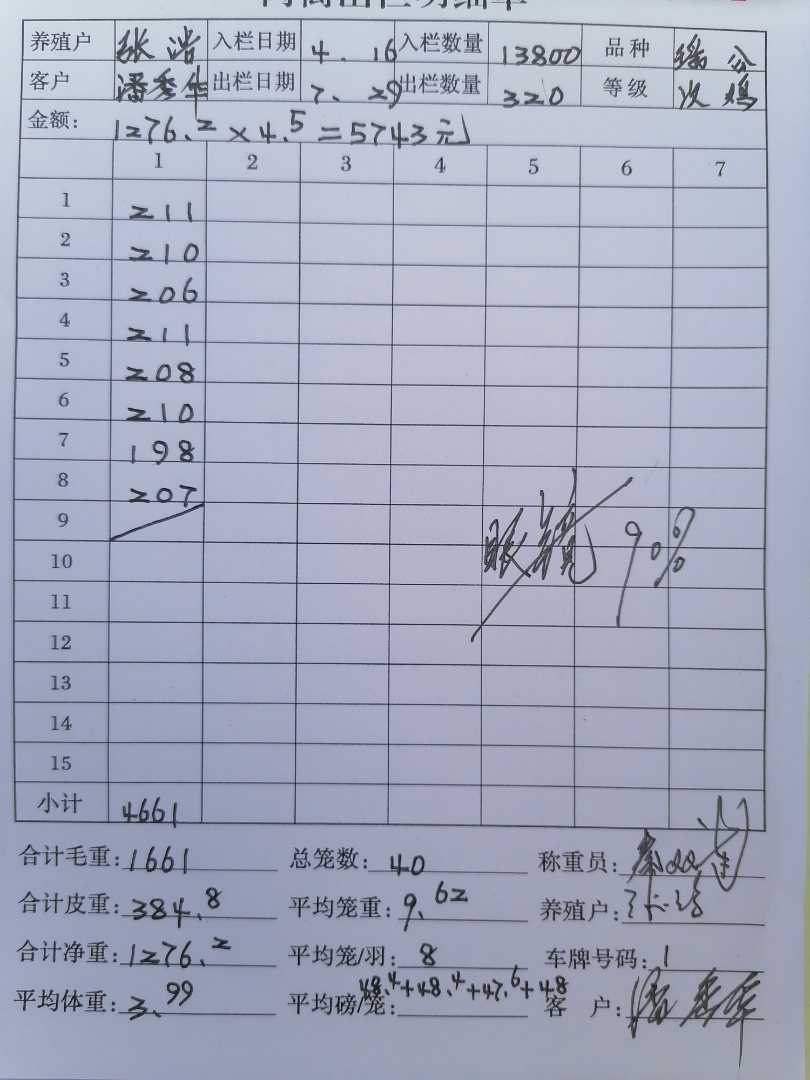 养殖户 张浩 入栏日期 4.16 入栏数量 13800 品种 瑶公
客户 潘秀华 出栏日期 7.29 出栏数量 320 等级 次鸡
金额: 1276.2 × 4.5 = 5743元
1 2 3 4 5 6 7
1 211
2 210
3 206
4 211
5 208
6 210
7 198
8 207
9
眼镜 9%
10
11
12
13
14
15
小计 4661
合计毛重: 1661 总笼数: 40 称重员:
合计皮重: 384.8 平均笼重: 9.62 养殖户: 张浩
合计净重: 1276.2 平均笼/羽: 8 车牌号码: 1
平均体重: 3.99 平均磅/笼: 48.4+48.4+47.6+48 客 户: 潘秀华